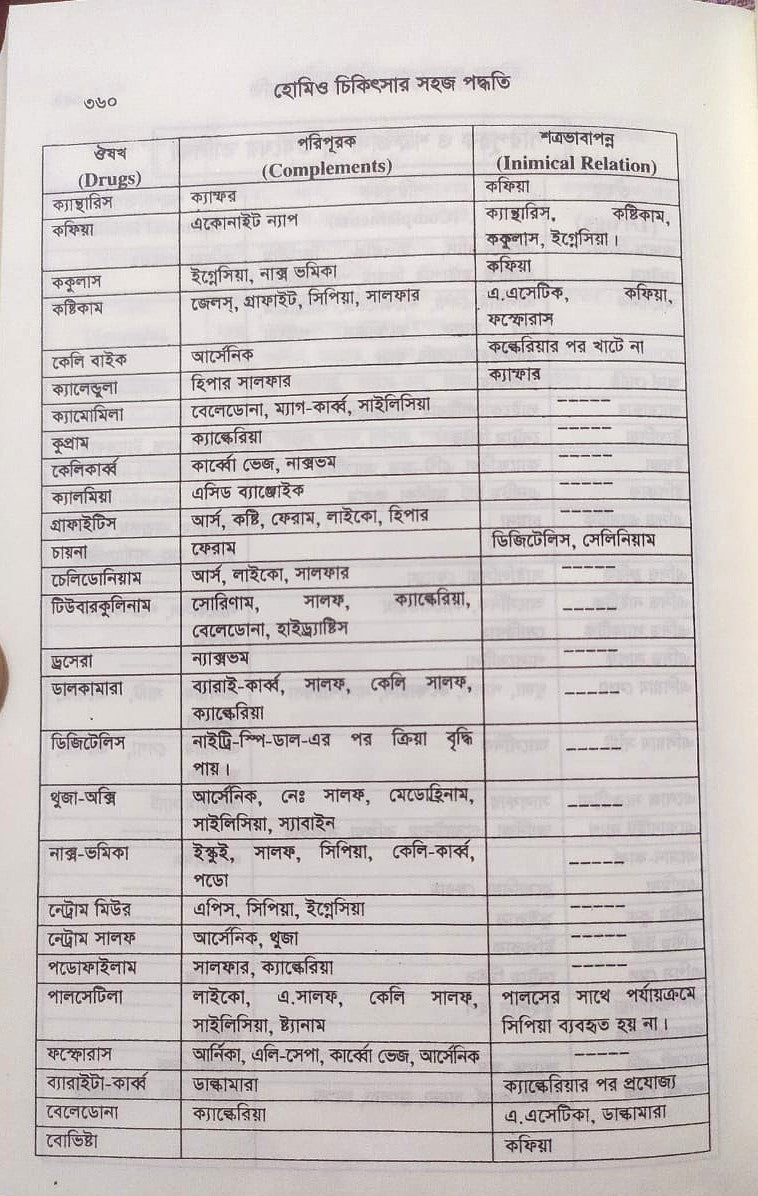 ৩৬০
হোমিও চিকিৎসার সহজ পদ্ধতি
ঔষধ পরিপূরক শত্রুভাবাপন্ন
(Drugs) (Complements) (Inimical Relation)
ক্যান্থারিস ক্যাম্ফর কফিয়া
কফিয়া একোনাইট ন্যাপ ক্যান্থারিস, কষ্টিকাম,
ককুলাস, ইগ্নেসিয়া।
ককুলাস ইগ্নেসিয়া, নাক্স ভমিকা কফিয়া
কষ্টিকাম জেলস্, গ্রাফাইট, সিপিয়া, সালফার এ.এসেটিক, কফিয়া,
ফস্ফোরাস
কেলি বাইক আর্সেনিক কল্কেরিয়ার পর খাটে না
ক্যালেন্ডুলা হিপার সালফার ক্যাম্ফার
ক্যামোমিলা বেলেডোনা, ম্যাগ-কার্ব্ব, সাইলিসিয়া -----
কুপ্রাম ক্যাল্কেরিয়া -----
কেলিকার্ব্ব কার্ব্বো ভেজ, নাক্সভম -----
ক্যালমিয়া এসিড ব্যাঞ্জোইক -----
গ্রাফাইটিস আর্স, কষ্টি, ফেরাম, লাইকো, হিপার -----
চায়না ফেরাম ডিজিটেলিস, সেলিনিয়াম
চেলিডোনিয়াম আর্স, লাইকো, সালফার -----
টিউবারকুলিনাম সোরিণাম, সালফ, ক্যাল্কেরিয়া, -----
বেলেডোনা, হাইড্র্যাষ্টিস
ড্রসেরা ন্যাক্সভম -----
ডালকামারা ব্যারাই-কার্ব্ব, সালফ, কেলি সালফ, -----
ক্যাল্কেরিয়া
ডিজিটেলিস নাইট্রি-স্পি-ডাল-এর পর ক্রিয়া বৃদ্ধি -----
পায়।
থুজা-অক্সি আর্সেনিক, নেঃ সালফ, মেডোহিনাম, -----
সাইলিসিয়া, স্যাবাইন
নাক্স-ভমিকা ইস্কুই, সালফ, সিপিয়া, কেলি-কার্ব্ব, -----
পডো
নেট্রাম মিউর এপিস, সিপিয়া, ইগ্নেসিয়া -----
নেট্রাম সালফ আর্সেনিক, থুজা -----
পডোফাইলাম সালফার, ক্যাল্কেরিয়া -----
পালসেটিলা লাইকো, এ.সালফ, কেলি সালফ, পালসের সাথে পর্যায়ক্রমে
সাইলিসিয়া, ষ্ট্যানাম সিপিয়া ব্যবহৃত হয় না।
ফস্ফোরাস আর্নিকা, এলি-সেপা, কার্ব্বো ভেজ, আর্সেনিক -----
ব্যারাইটা-কার্ব্ব ডাল্কামারা ক্যাল্কেরিয়ার পর প্রযোজ্য
বেলেডোনা ক্যাল্কেরিয়া এ.এসেটিকা, ডাল্কামারা
বোভিষ্টা কফিয়া